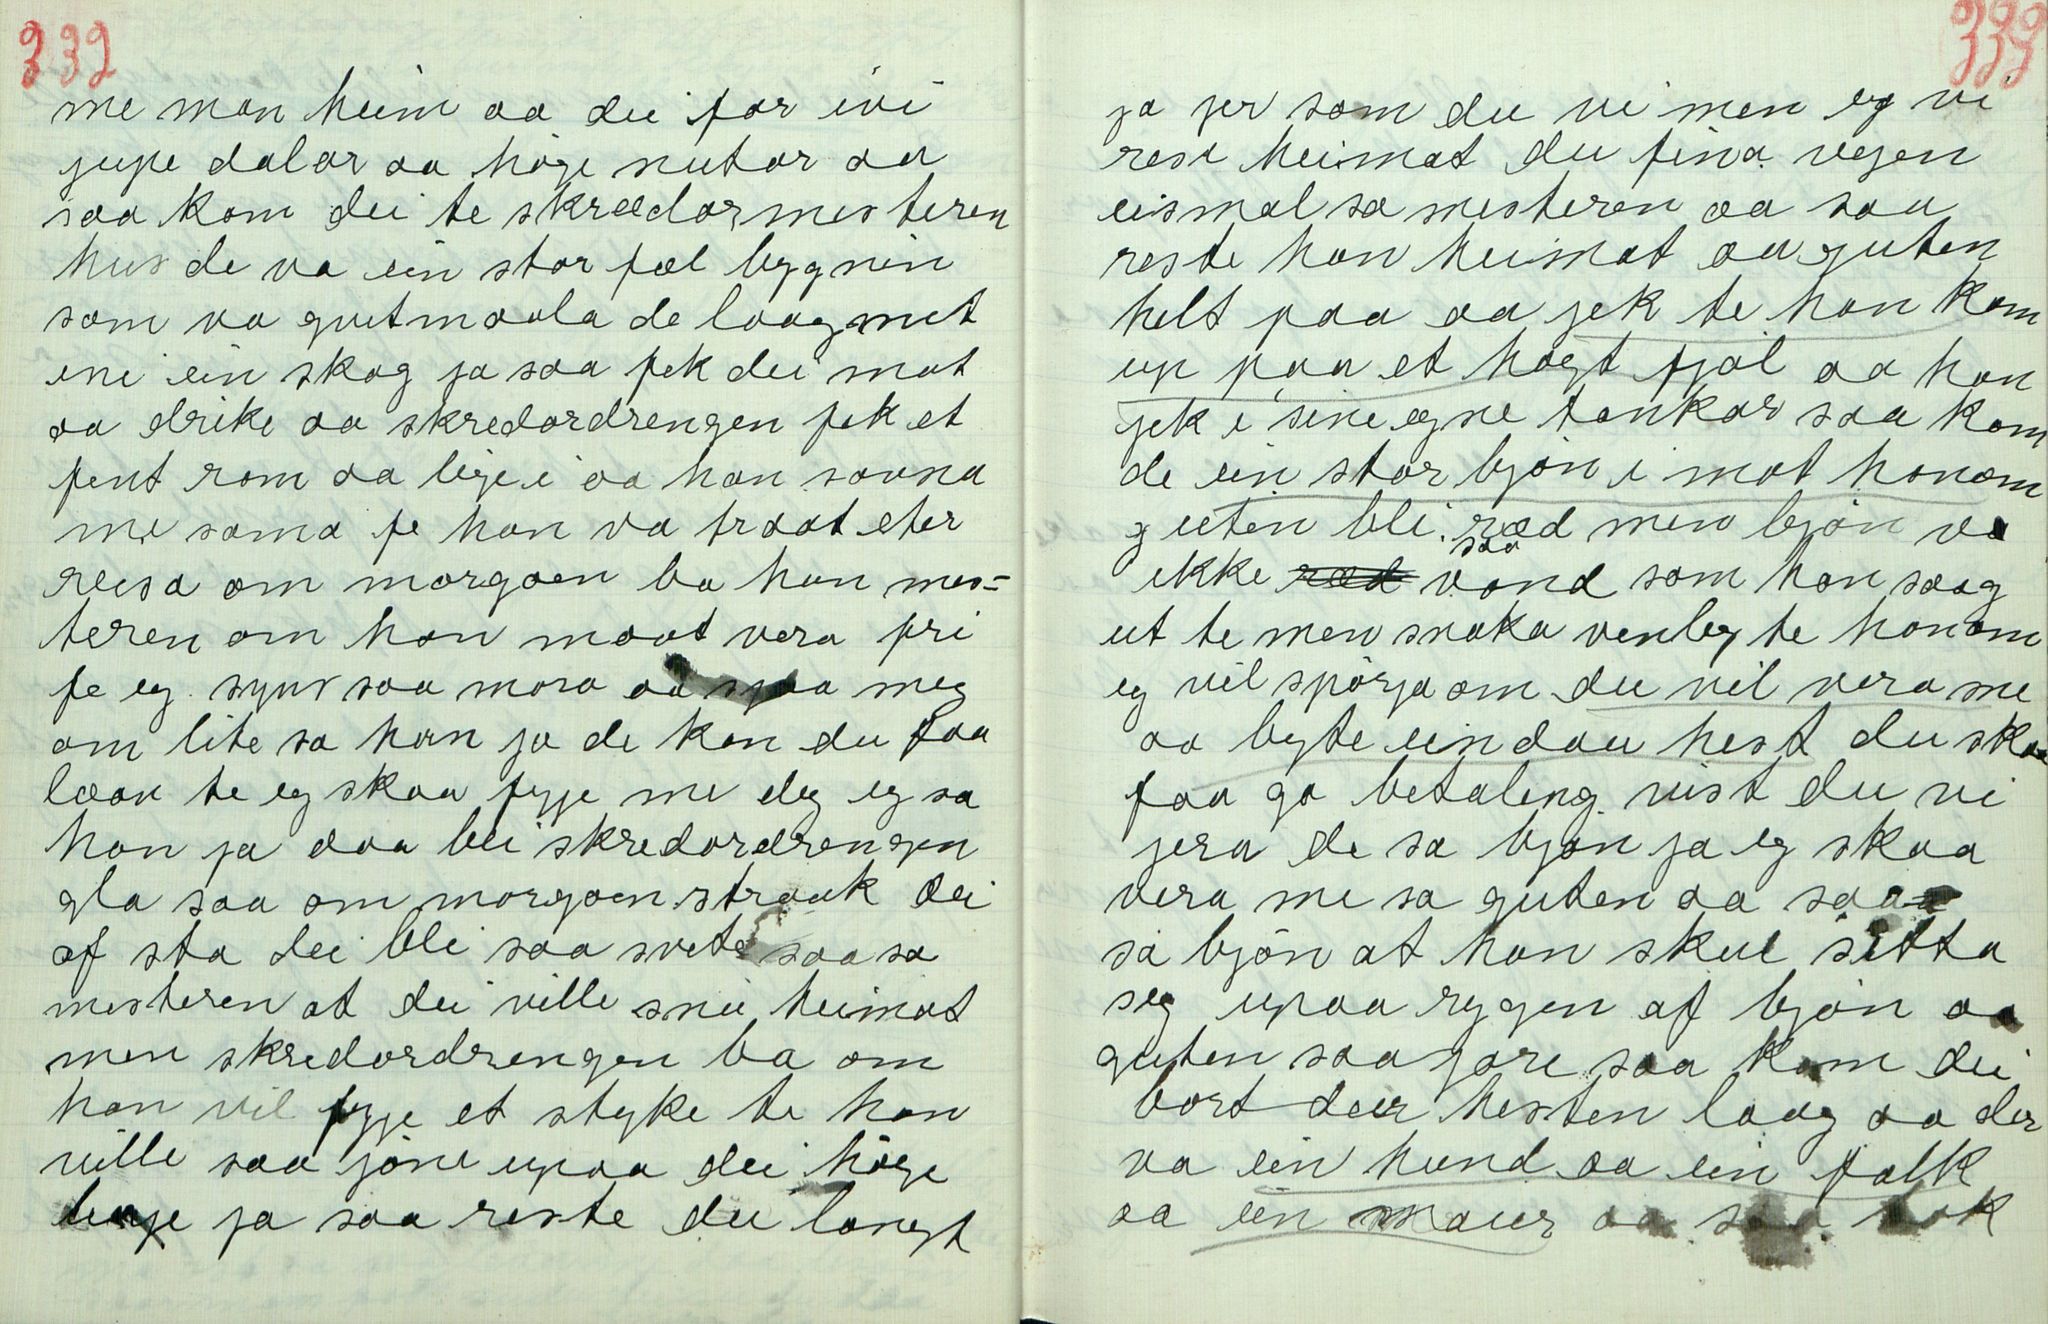 332
me man heim aa dei for ivi
jupe dalar aa høge nutar aa
saa kom dei te skrædarmesteren
hus de va ein stor fæl bygnin
som va qvitmaala de laag mit
ini ein skog ja saa fek dei mat
aa drike aa skredardrengen fek et
fent rom aa ligje i aa han sovna
me sama fe han va traat eter
reisa om morgoen ba han mes=
teren om han maat vera fri
fe eg syns saa mora aa sjaa meg
om lite sa han ja de kan du faa
laav te eg skaa fygje me deg eg sa
han ja daa blei skredardrengen
gla saa om morgoen straak dei
af sta dei blei saa svete saa sa
mesteren at dei ville snu heimat
men skredardrengen ba om
han vil fygje et styke te han
ville saa jøne upaa dei høge
ja saa reste dei langt
333
ja jer som du vi men eg vi
rese heimat du fina vegen
eismal sa mesteren aa saa
reste han heimat aa guten
helt paa aa jek te han kom
up paa et høgt fjøl aa han
jek i sine egne tankar saa kom
de ein stor bjøn i mot honom
guten blei ræd men bjøn va
ikke ræd saa vond som han saag
ut te men snaka venleg te honom
eg vil spørja om du vil vera me
aa byte ein dau hest du skaa
faa go betaling vist du vi
jera de sa bjøn ja eg skaa
vera me sa guten aa saa
sa bjøn at han skul sitta
seg upaa rygen af bjøn aa
guten saa gore saa kom dei
bort der hesten laag aa der
va ein hund aa ein falk
aa ein maur aa saa